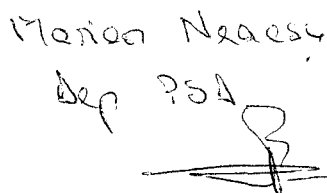 Marian Neacsu
Dep PSD